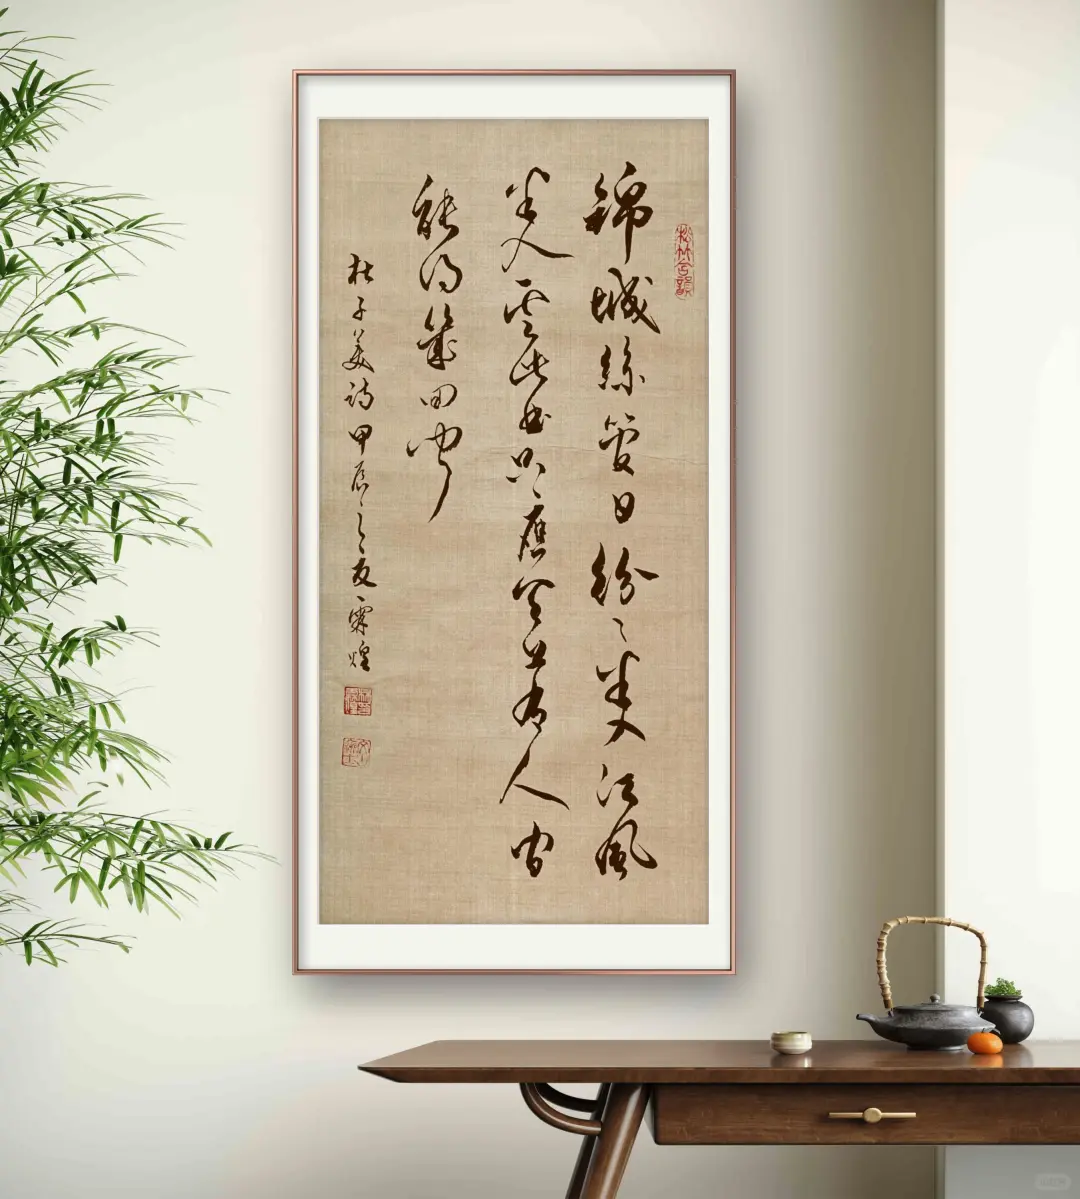 松竹含韻
錦城絲管日紛〻半入江風
半入雲此曲只應天上有人間
能得幾回聞
杜子美詩甲辰之夏